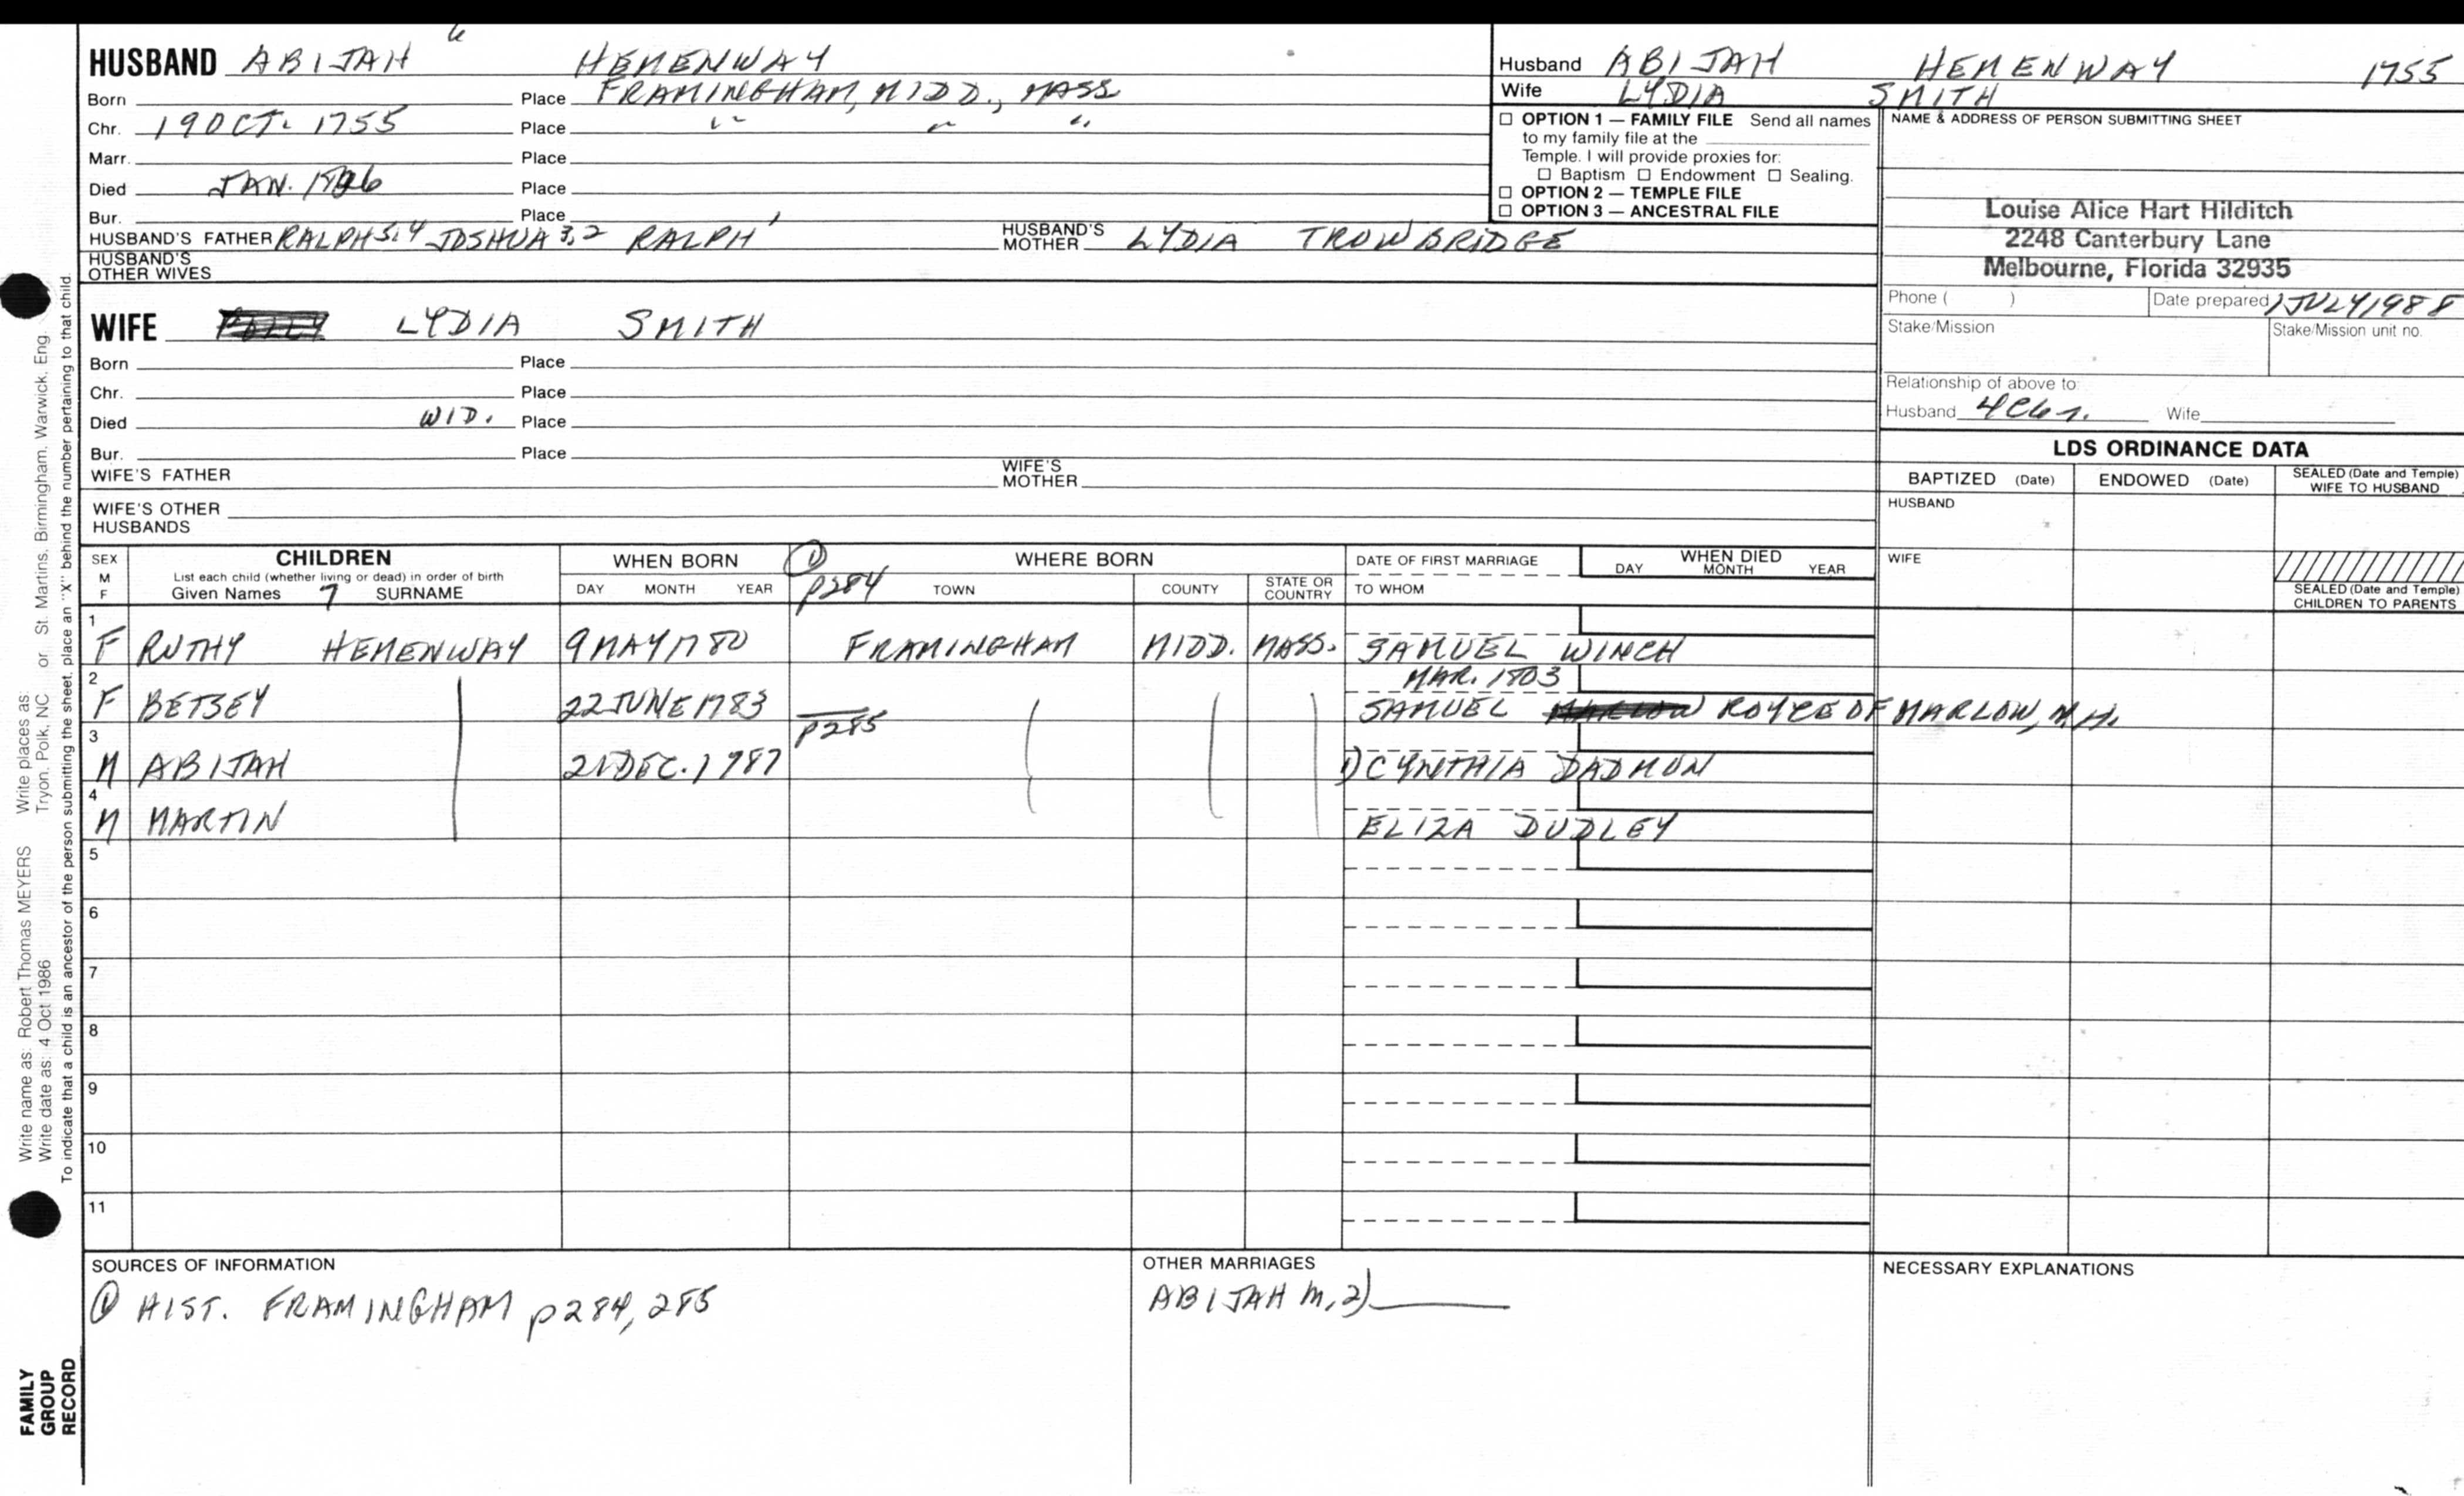 HUSBAND ABIJAH 6 HEMENWAY
Born Place FRAMINGHAM, MIDD., MASS
Chr. 19 OCT. 1755 Place " " "
Marr. Place
Died JAN. Place
Bur. Place
HUSBAND'S FATHER RALPH 5,4 JOSHUA 3,2 RALPH 1 HUSBAND'S MOTHER LYDIA TROWBRIDGE
HUSBAND'S OTHER WIVES
Husband ABIJAH HEMENWAY 1755
Wife LYDIA SMITH
☐ OPTION 1 — FAMILY FILE Send all names
to my family file at the
Temple. I will provide proxies for:
☐ Baptism ☐ Endowment ☐ Sealing.
☐ OPTION 2 — TEMPLE FILE
☐ OPTION 3 — ANCESTRAL FILE
NAME & ADDRESS OF PERSON SUBMITTING SHEET
Louise Alice Hart Hilditch
2248 Canterbury Lane
Melbourne, Florida 32935
Phone ( ) Date prepared 1 JULY 1988
Stake/Mission Stake/Mission unit no.
Relationship of above to:
Husband Wife
WIFE LYDIA SMITH
Born Place
Chr. Place
Died WID. Place
Bur. Place
WIFE'S FATHER WIFE'S MOTHER
WIFE'S OTHER HUSBANDS
LDS ORDINANCE DATA
BAPTIZED (Date) ENDOWED (Date) SEALED (Date and Temple) WIFE TO HUSBAND
HUSBAND
WIFE
SEALED (Date and Temple) CHILDREN TO PARENTS
SEX M F CHILDREN WHEN BORN ① p284 WHERE BORN DATE OF FIRST MARRIAGE WHEN DIED
List each child (whether living or dead) in order of birth
Given Names 7 SURNAME DAY MONTH YEAR TOWN COUNTY STATE OR COUNTRY TO WHOM DAY MONTH YEAR
1 F RUTHY HEMENWAY 9 MAY 1780 FRAMINGHAM MIDD. MASS. SAMUEL WINCH
MAR. 1803
2 F BETSEY 22 JUNE 1783 SAMUEL ROYCE OF MARLOW, N.H.
p285
3 M ABIJAH 21 DEC. 1787 1) CYNTHIA DADMUN
4 M MARTIN ELIZA DUDLEY
5
6
7
8
9
10
11
SOURCES OF INFORMATION
① HIST. FRAMINGHAM p284, 285
OTHER MARRIAGES
ABIJAH m. 2)
NECESSARY EXPLANATIONS
Write name as: Robert Thomas MEYERS Write places as: Tryon, Polk, NC or St. Martins, Birmingham, Warwick, Eng.
Write date as: 4 Oct 1986
To indicate that a child is an ancestor of the person submitting the sheet, place an "X" behind the number pertaining to that child.
FAMILY
GROUP
RECORD